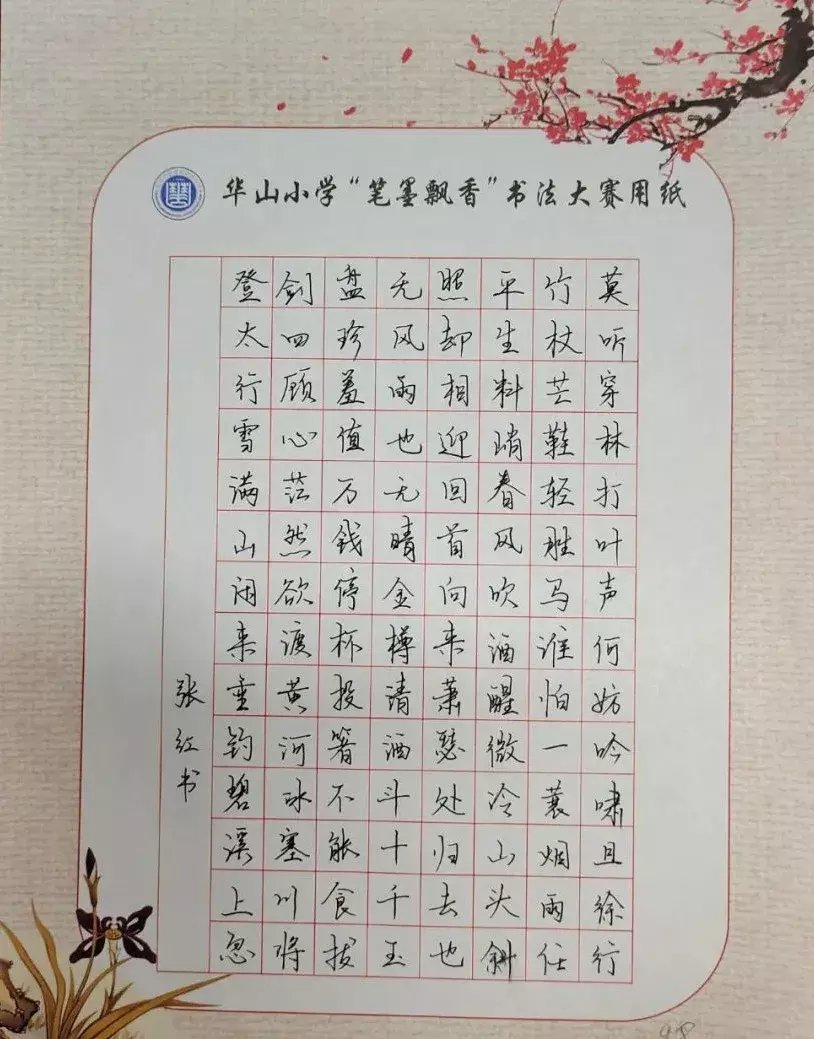 华山小学“笔墨飘香”书法大赛用纸
莫听穿林打叶声何妨吟啸且徐行
竹杖芒鞋轻胜马谁怕一蓑烟雨任
平生料峭春风吹酒醒微冷山头斜
照却相迎回首向来萧瑟处归去也
无风雨也无晴金樽清酒斗十千玉
盘珍羞值万钱停杯投箸不能食拔
剑四顾心茫然欲渡黄河冰塞川将
登太行雪满山闲来垂钓碧溪上忽
张红书